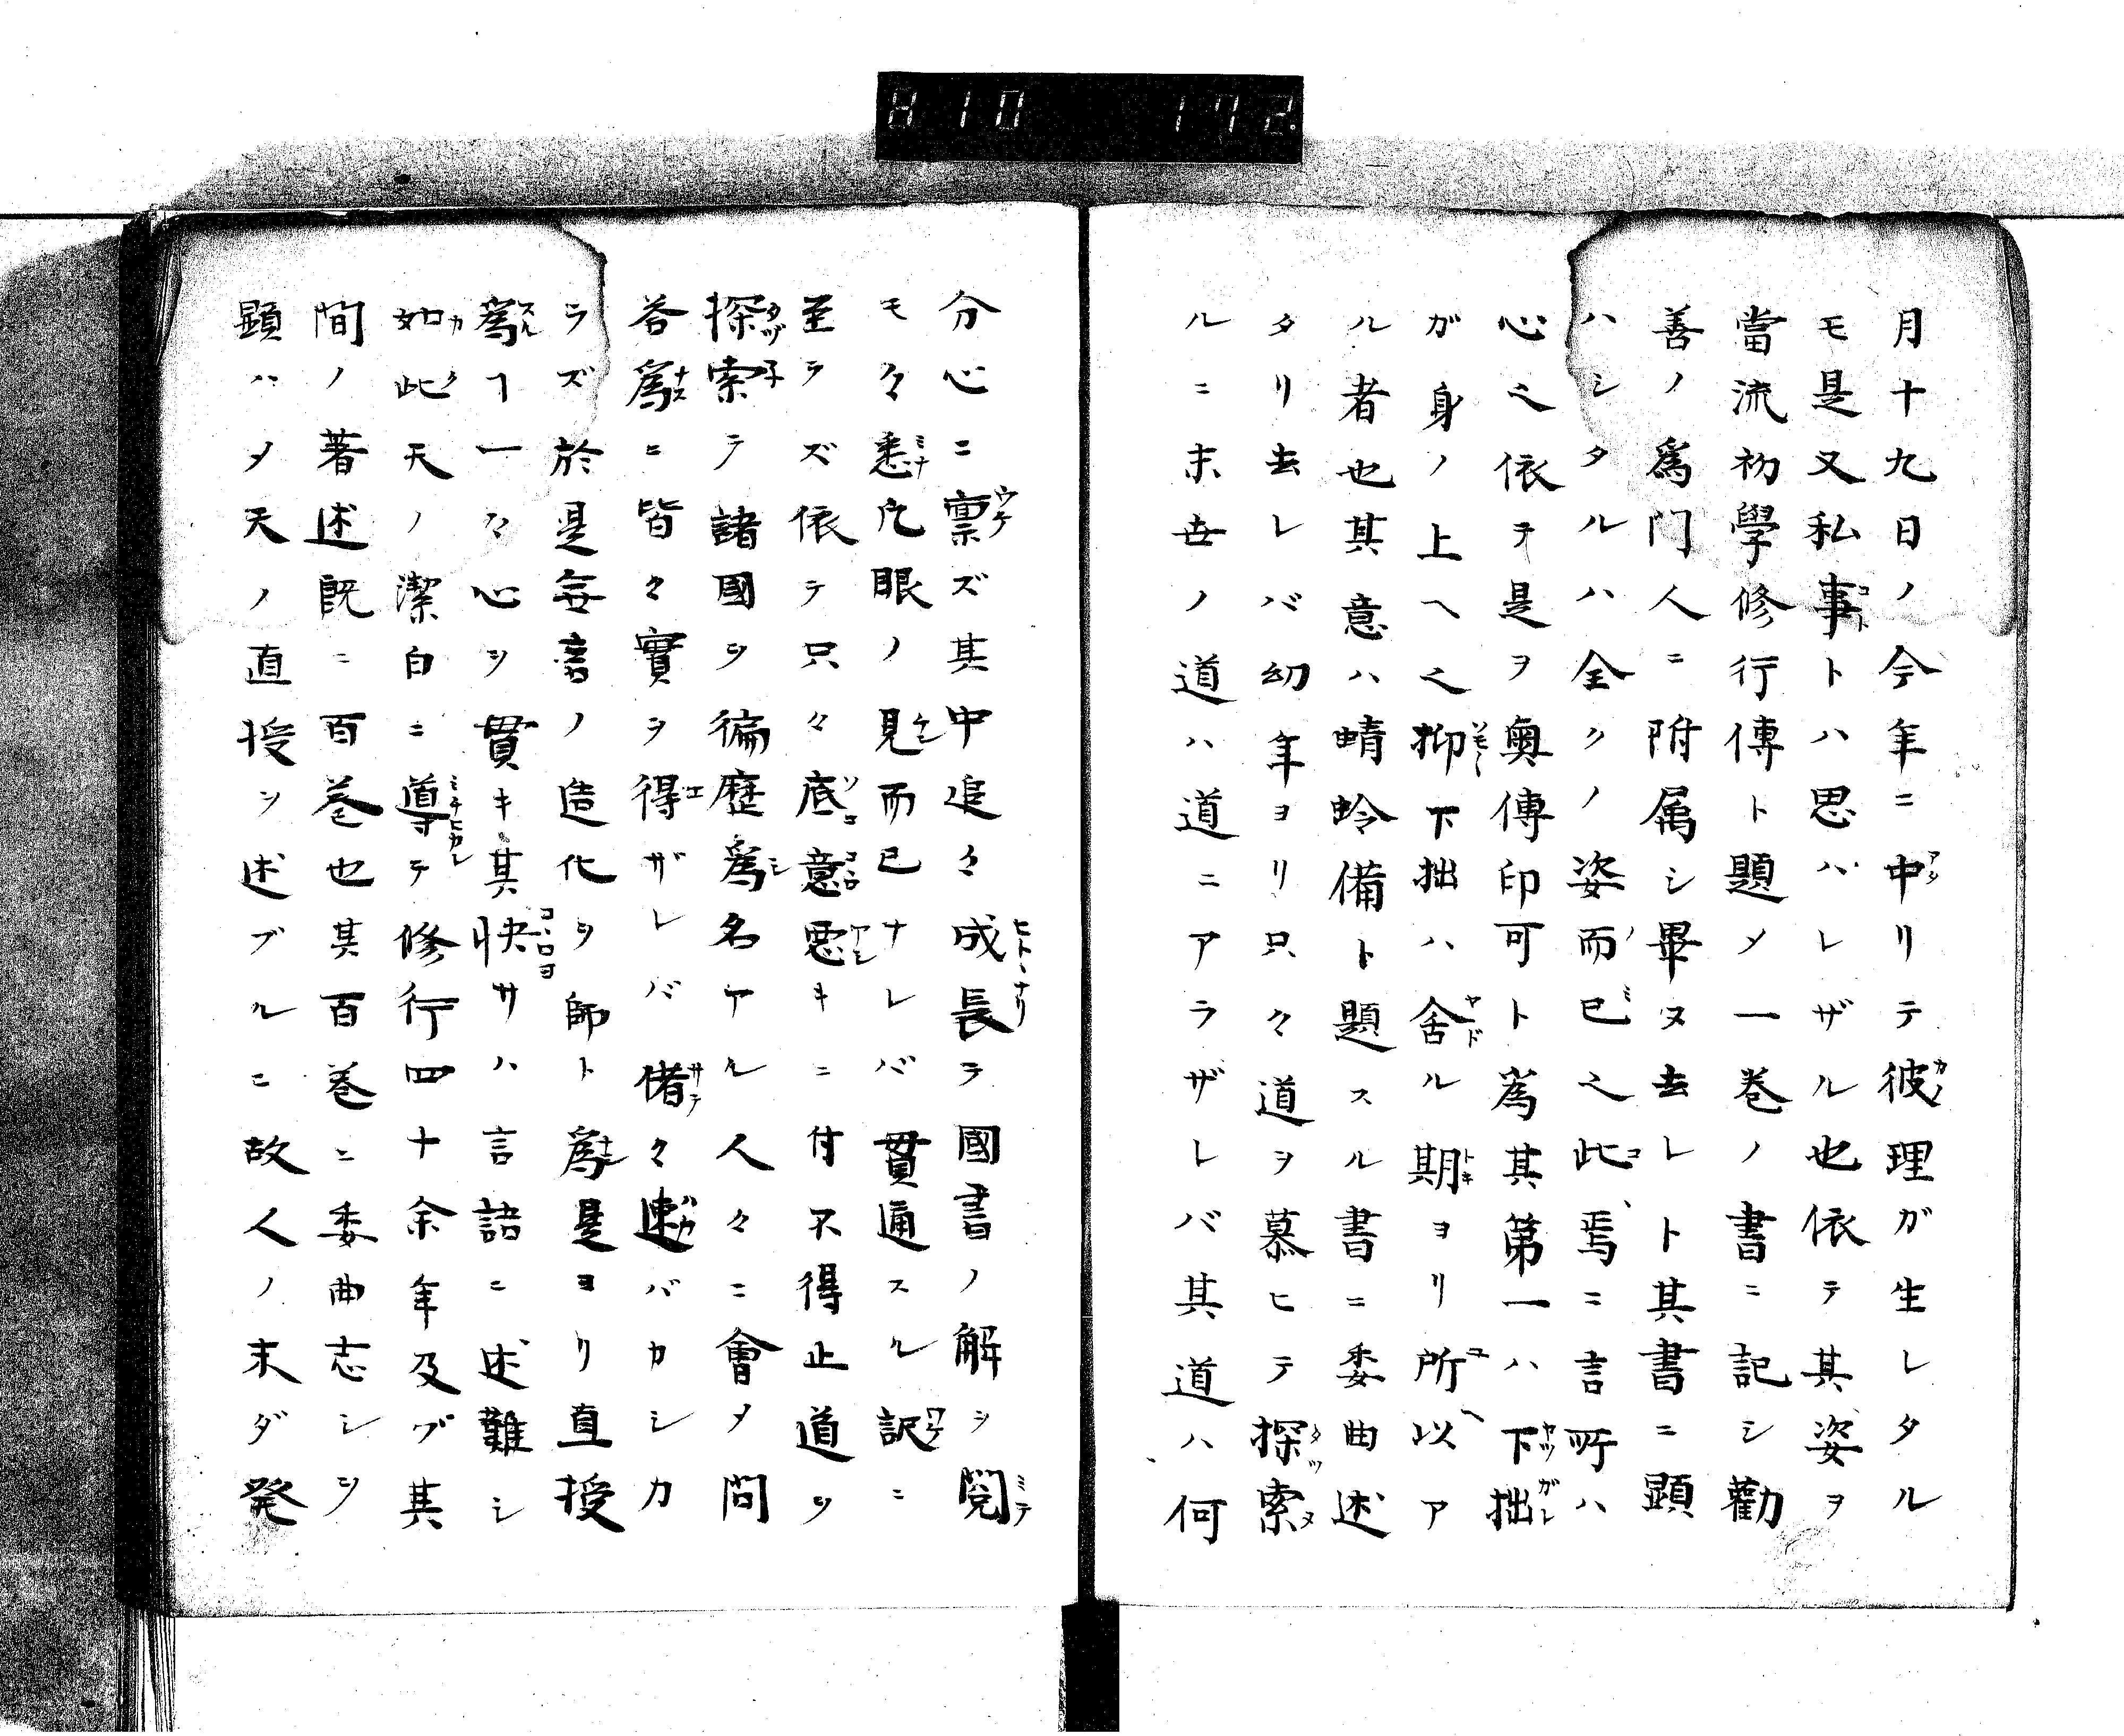 810 172
月十九日ノ今年ニ中リテ彼理ガ生レタル
モ是又私事トハ思ハレザル也依テ其姿ヲ
當流初學修行傳ト題メ一巻ノ書ニ記シ勸
善ノ為門人ニ附属シ畢ヌ去レト其書ニ顕
ハシタルハ全クノ姿而已之此焉ニ言所ハ
心之依テ是ヲ奥傳印可ト為其第一ハ下拙
ガ身ノ上ヘ之抑下拙ハ舍ル期ヨリ所以ア
ル者也其意ハ蜻蛉備ト題スル書ニ委曲述
タリ去レバ幼年ヨリ只々道ヲ慕ヒテ探索
ルニ末世ノ道ハ道ニアラザレバ其道ハ何
分心ニ稟ズ其中追々成長テ國書ノ解ヲ閲
モ々悉凢眼ノ見而已ナレバ貫通スル訳ニ
至ラズ依テ只々底意悪キニ付不得止道ヲ
探索テ諸國ヲ徧歴為名アル人々ニ會メ問
答為ニ皆々實ヲ得ザレバ偖々速バカシカ
ラズ於是毎書ノ造化ヲ師ト為是ヨリ直授
為ヿ一々心ヲ貫キ其快サハ言語ニ述難シ
如此天ノ潔白ニ導テ修行四十余年及ブ其
間ノ著述既ニ百巻也其百巻ニ委曲志シヲ
顕ハメ天ノ直授ヲ述ブルニ故人ノ末ダ発